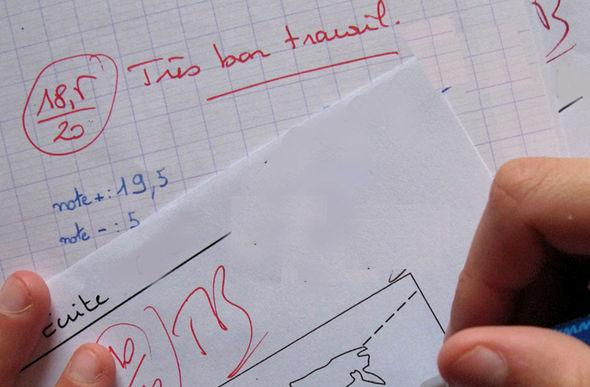 18,5 Très bon travail.
20
note + : 19,5
note - : 5
Écrite
TB